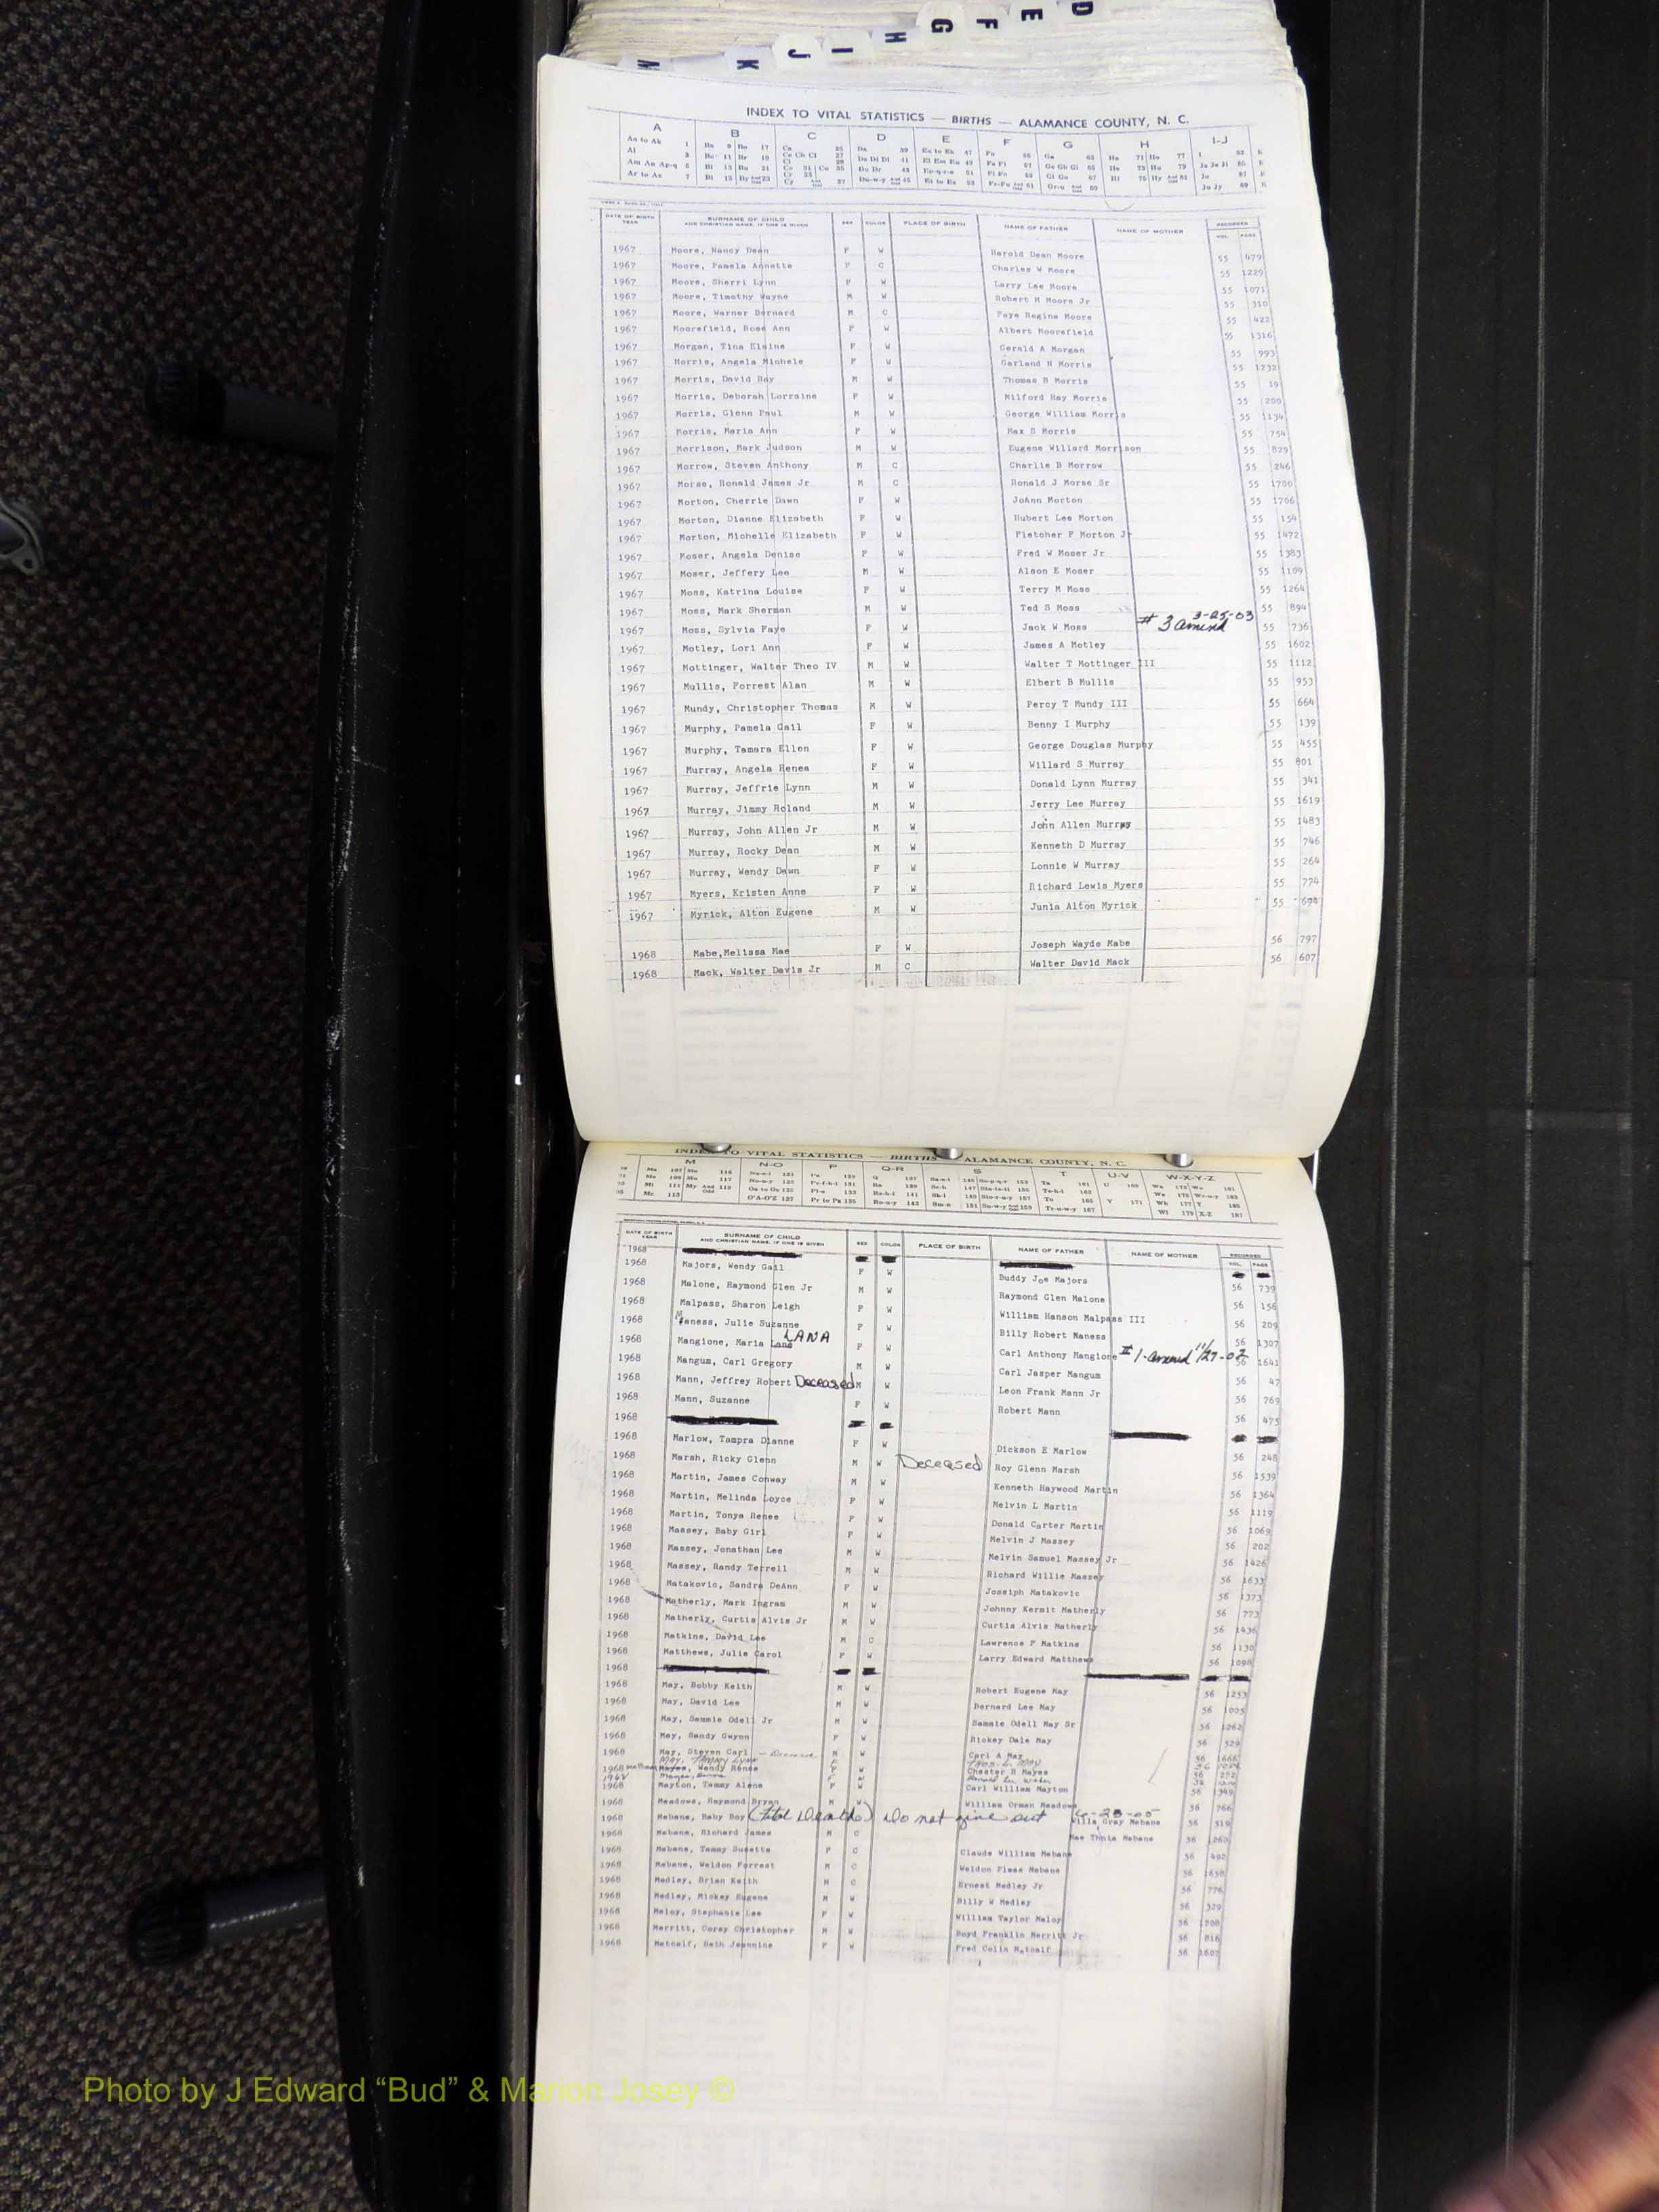 D
E
F
G
H
I
J
K
INDEX TO VITAL STATISTICS — BIRTHS — ALAMANCE COUNTY, N. C.
A B C D E F G H I-J
DATE OF BIRTH YEAR SURNAME OF CHILD AND CHRISTIAN NAME, IF ONE IS GIVEN SEX COLOR PLACE OF BIRTH NAME OF FATHER NAME OF MOTHER RECORDED VOL. PAGE
1967 Moore, Nancy Dean F W Harold Dean Moore 55 479
1967 Moore, Pamela Annette F C Charles W Moore 55 1229
1967 Moore, Sherri Lynn F W Larry Lee Moore 55 1071
1967 Moore, Timothy Wayne M W Robert M Moore Jr 55 310
1967 Moore, Warner Bernard M C Faye Regina Moore 55 422
1967 Moorefield, Rose Ann F W Albert Moorefield 55 1316
1967 Morgan, Tina Elaine F W Gerald A Morgan 55 993
1967 Morris, Angela Michele F W Garland N Morris 55 1232
1967 Morris, David Ray M W Thomas B Morris 55 19
1967 Morris, Deborah Lorraine F W Milford Ray Morris 55 200
1967 Morris, Glenn Paul M W George William Morris 55 1134
1967 Morris, Maria Ann F W Max S Morris 55 754
1967 Morrison, Mark Judson M W Eugene Willard Morrison 55 829
1967 Morrow, Steven Anthony M C Charlie B Morrow 55 246
1967 Morse, Ronald James Jr M C Ronald J Morse Sr 55 1700
1967 Morton, Cherrie Dawn F W JoAnn Morton 55 1706
1967 Morton, Dianne Elizabeth F W Hubert Lee Morton 55 154
1967 Morton, Michelle Elizabeth F W Fletcher F Morton Jr 55 1472
1967 Moser, Angela Denise F W Fred W Moser Jr 55 1383
1967 Moser, Jeffery Lee M W Alson E Moser 55 1109
1967 Moss, Katrina Louise F W Terry M Moss 55 1264
1967 Moss, Mark Sherman M W Ted S Moss 55 894
1967 Moss, Sylvia Faye F W Jack W Moss # 3 amend 3-25-03 55 736
1967 Motley, Lori Ann F W James A Motley 55 1602
1967 Mottinger, Walter Theo IV M W Walter T Mottinger III 55 1112
1967 Mullis, Forrest Alan M W Elbert B Mullis 55 953
1967 Mundy, Christopher Thomas M W Percy T Mundy III 55 664
1967 Murphy, Pamela Gail F W Benny I Murphy 55 139
1967 Murphy, Tamara Ellen F W George Douglas Murphy 55 455
1967 Murray, Angela Renea F W Willard S Murray 55 801
1967 Murray, Jeffrie Lynn M W Donald Lynn Murray 55 341
1967 Murray, Jimmy Roland M W Jerry Lee Murray 55 1619
1967 Murray, John Allen Jr M W John Allen Murray 55 1483
1967 Murray, Rocky Dean M W Kenneth D Murray 55 746
1967 Murray, Wendy Dawn F W Lonnie W Murray 55 264
1967 Myers, Kristen Anne F W Richard Lewis Myers 55 774
1967 Myrick, Alton Eugene M W Junia Alton Myrick 55 694
1968 Mabe, Melissa Mae F W Joseph Wayde Mabe 56 797
1968 Mack, Walter Davis Jr M C Walter David Mack 56 607
INDEX TO VITAL STATISTICS — BIRTHS — ALAMANCE COUNTY, N. C.
M N-O P Q-R S T U-V W-X-Y-Z
DATE OF BIRTH YEAR SURNAME OF CHILD AND CHRISTIAN NAME, IF ONE IS GIVEN SEX COLOR PLACE OF BIRTH NAME OF FATHER NAME OF MOTHER RECORDED VOL. PAGE
1968
1968 Majors, Wendy Gail F W Buddy Joe Majors 56 739
1968 Malone, Raymond Glen Jr M W Raymond Glen Malone 56 156
1968 Malpass, Sharon Leigh F W William Hanson Malpass III 56 209
1968 Maness, Julie Suzanne F W Billy Robert Maness 56 1307
1968 Mangione, Maria Lane LANA F W Carl Anthony Mangione # 1-amend 11/27-02 56 1641
1968 Mangum, Carl Gregory M W Carl Jasper Mangum 56 47
1968 Mann, Jeffrey Robert Deceased M W Leon Frank Mann Jr 56 769
1968 Mann, Suzanne F W Robert Mann 56 475
1968
1968 Marlow, Tampra Dianne F W Dickson E Marlow 56 248
1968 Marsh, Ricky Glenn M W Deceased Roy Glenn Marsh 56 1539
1968 Martin, James Conway M W Kenneth Haywood Martin 56 1364
1968 Martin, Melinda Loyce F W Melvin L Martin 56 1119
1968 Martin, Tonya Renee F W Donald Carter Martin 56 1069
1968 Massey, Baby Girl F W Melvin J Massey 56 202
1968 Massey, Jonathan Lee M W Melvin Samuel Massey Jr 56 1426
1968 Massey, Randy Terrell M W Richard Willie Massey 56 1633
1968 Matakovic, Sandra DeAnn F W Jossiph Matakovic 56 1373
1968 Matherly, Mark Ingram M W Johnny Kermit Matherly 56 773
1968 Matherly, Curtis Alvis Jr M W Curtis Alvis Matherly 56 1436
1968 Matkins, David Lee M C Lawrence F Matkins 56 1130
1968 Matthews, Julie Carol F W Larry Edward Matthews 56 1098
1968
1968 May, Bobby Keith M W Robert Eugene May 56 1253
1968 May, David Lee M W Bernard Lee May 56 1005
1968 May, Sammie Odell Jr M W Sammie Odell May Sr 56 1262
1968 May, Sandy Gwynn F W Rickey Dale May 56 529
1968 May, Steven Carl M W Carl A May 56 1666
MAY, TAMMY LYNN F
1968 Mayes, Wendy Renee F W Chester H Mayes 56
1968 Mayton, Tammy Alene F W Carl William Mayton 56 1349
1968 Meadows, Raymond Bryan M W William Orman Meadows 56 766
1968 Mebane, Baby Boy (fetal death) Do not give out 6-28-05 Willa Gray Mebane 56 319
1968 Mebane, Richard James M C Mae Thnia Mebane 56 1260
1968 Mebane, Tammy Susette F C Claude William Mebane 56 492
1968 Mebane, Weldon Forrest M C Weldon Pleas Mebane 56 1658
1968 Medley, Brian Keith M C Ernest Medley Jr 56 776
1968 Medley, Mickey Eugene M W Billy W Medley 56 329
1968 Meloy, Stephanie Lee F W William Taylor Meloy 56 1208
1968 Merritt, Corey Christopher M W Boyd Franklin Merritt Jr 56 816
1968 Metcalf, Beth Jeannine F W Fred Colin Metcalf 56 1607
Photo by J Edward “Bud” & Marion Josey ©